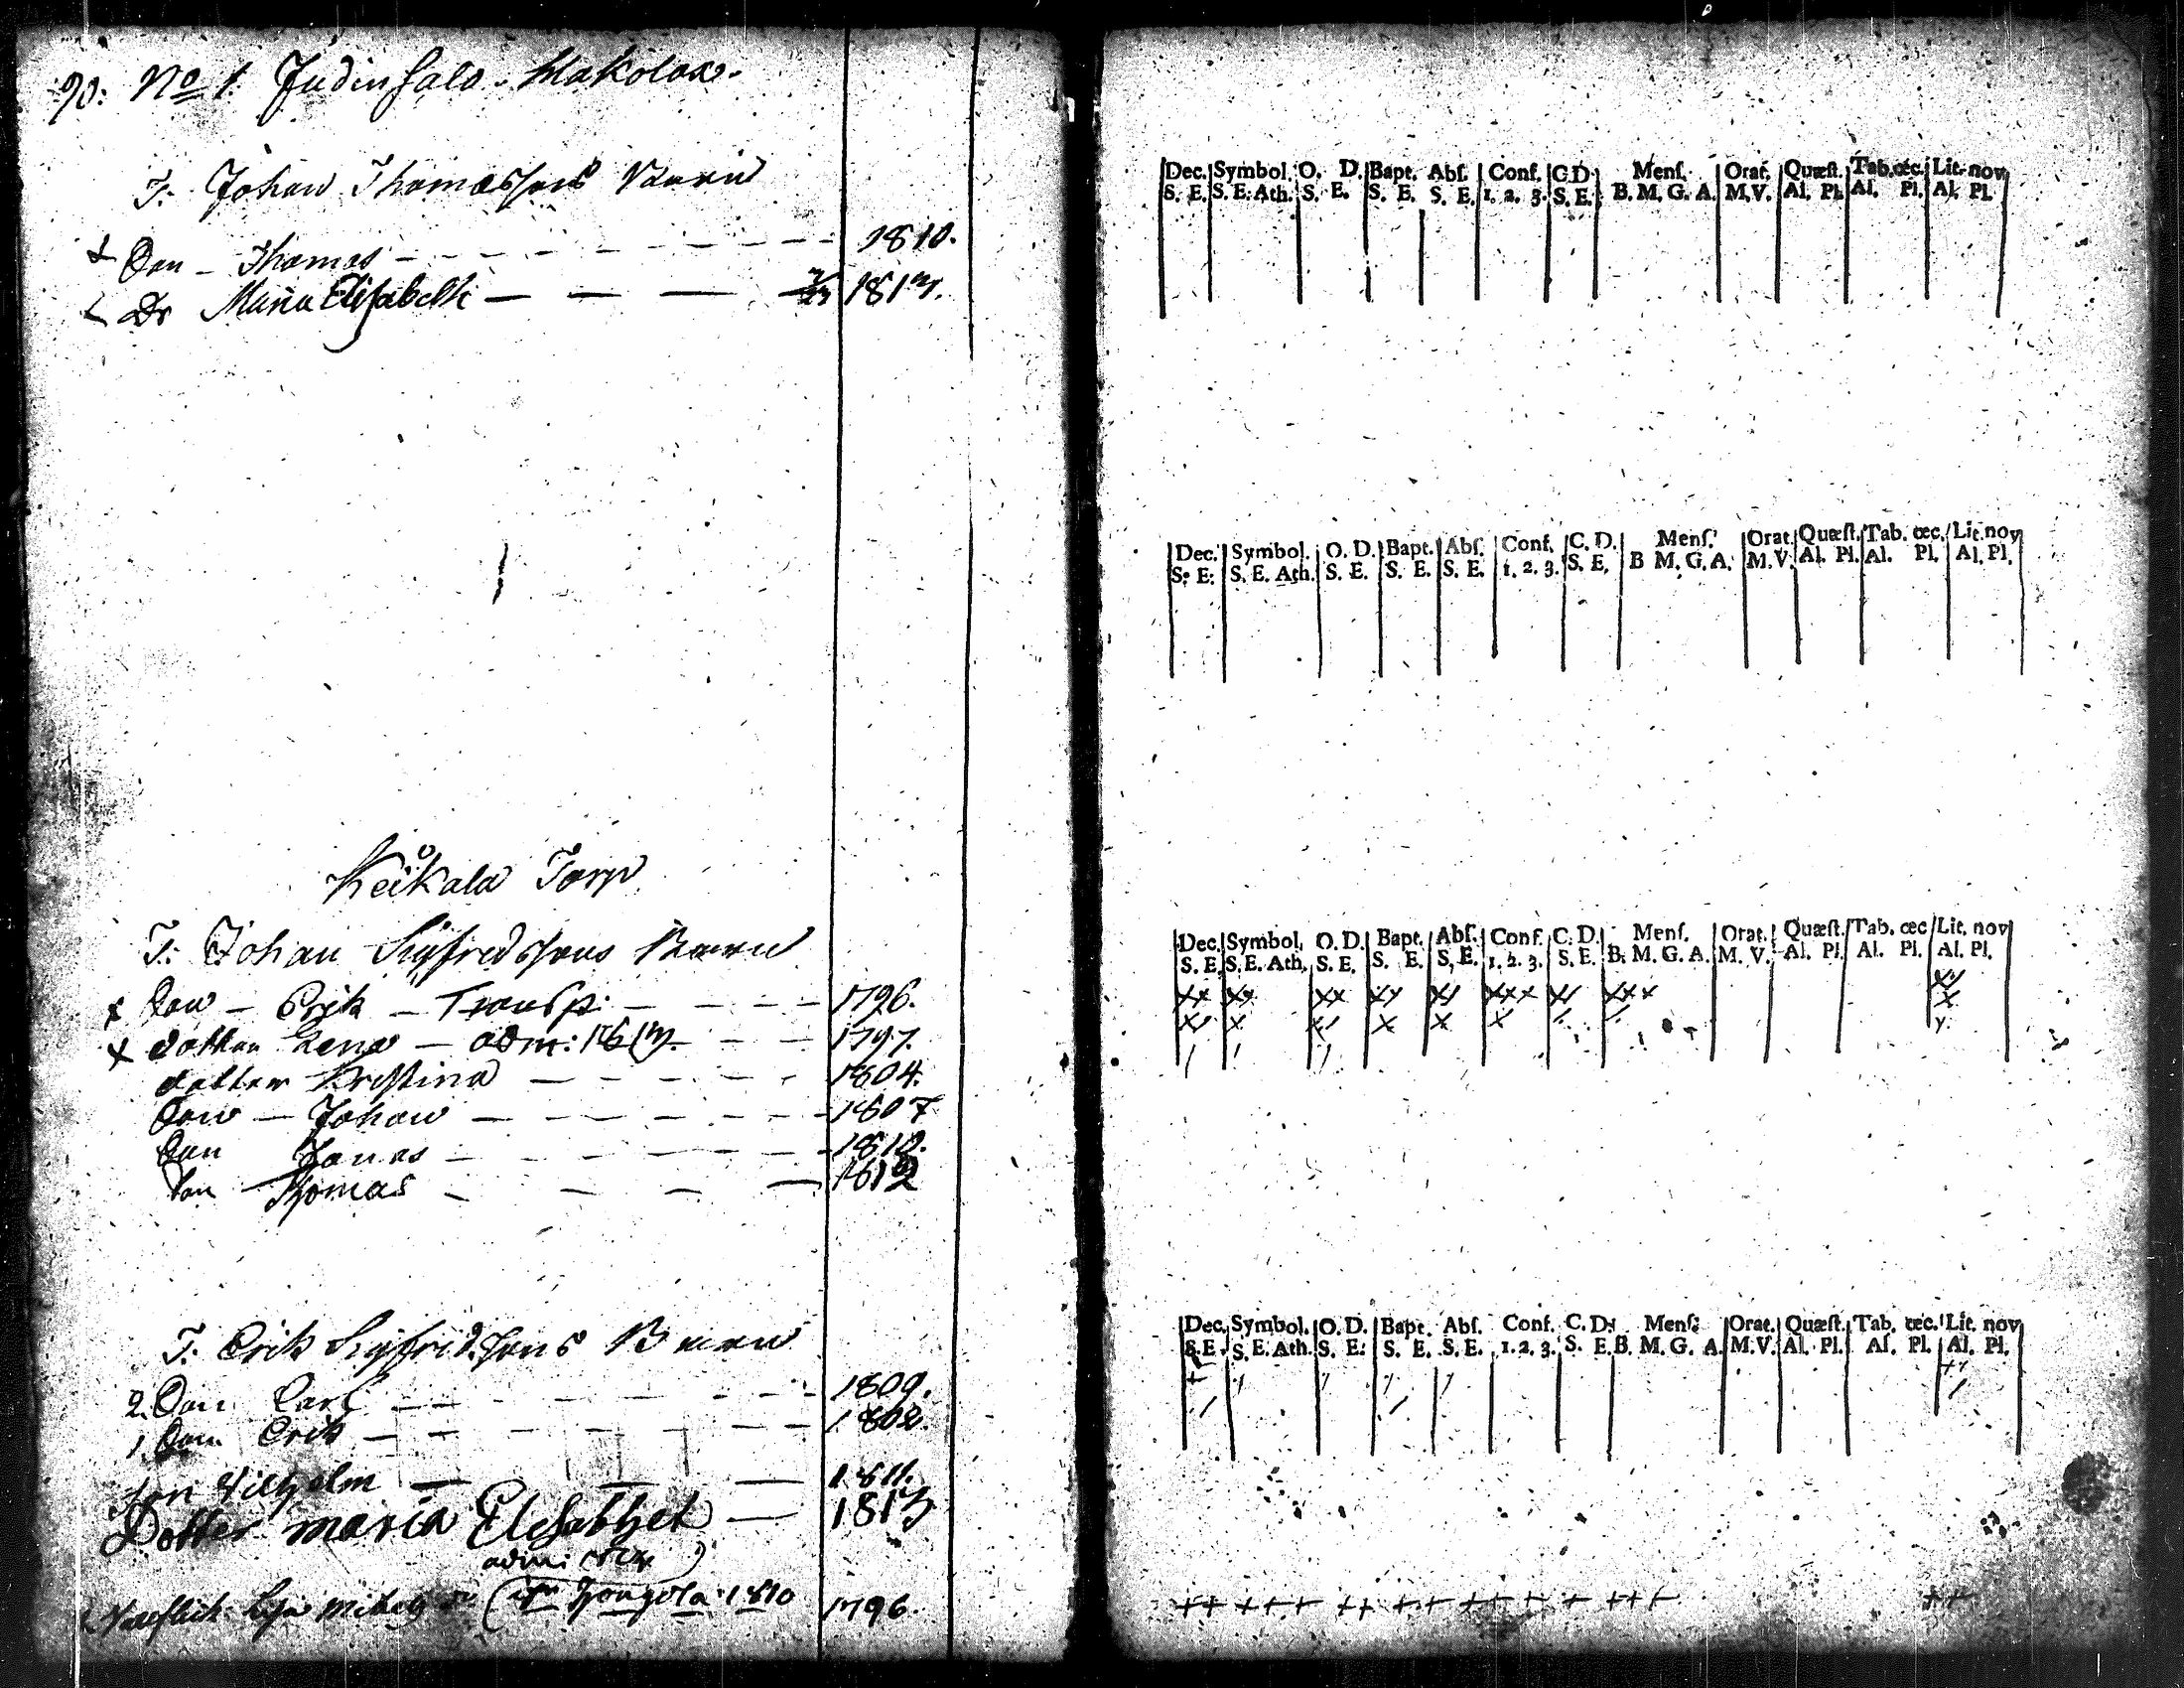 90. No 1. Judinsalo. Makolax.
T. Johan Thomassons Barn
Son - Thomas - 1810.
Dr Maria Elisabeth - 1813.
Keikala Torp
T. Johan Sigfredssons Barn
Son - Erik - Transp. - 1796.
dotter Lena - adm: 1813. - 1797.
dotter Kristina - 1804.
Son - Johan - 1807
Son Jonas - 1810.
Son Thomas - 1812
T. Erik Sigfridssons Barn
2. Son Carl - 1809.
1. Son Erik - 1802.
Son Vilhelm - 1811.
Dotter maria Elesabhet - 1813
adm:
1810 1796
Dec. Symbol. O. D. Bapt. Abſ. Conf. C.D. Menſ. Orat. Quæſt. Tab. œc. Lit. nov
S. E. S. E. Ath. S. E. S. E. S. E. 1. 2. 3. S. E. B. M. G. A. M. V. Al. Pl. Al. Pl. Al. Pl.
Dec. Symbol. O. D. Bapt. Abſ. Conf. C. D. Menſ. Orat. Quæſt. Tab. œc. Lit. nov
S. E. S. E. Ath. S. E. S. E. S. E. 1. 2. 3. S. E. B M. G. A. M. V. Al. Pl. Al. Pl. Al. Pl.
Dec. Symbol. O. D. Bapt. Abſ. Conf. C. D. Menſ. Orat. Quæſt. Tab. œc Lit. nov
S. E. S. E. Ath. S. E. S. E. S. E. 1. 2. 3. S. E. B. M. G. A. M. V. Al. Pl. Al. Pl. Al. Pl.
Dec. Symbol. O. D. Bapt. Abſ. Conf. C. D. Menſ. Orat. Quæſt. Tab. œc. Lit. nov
S. E. S. E. Ath. S. E. S. E. S. E. 1. 2. 3. S. E. B. M. G. A. M. V. Al. Pl. Al. Pl. Al. Pl.